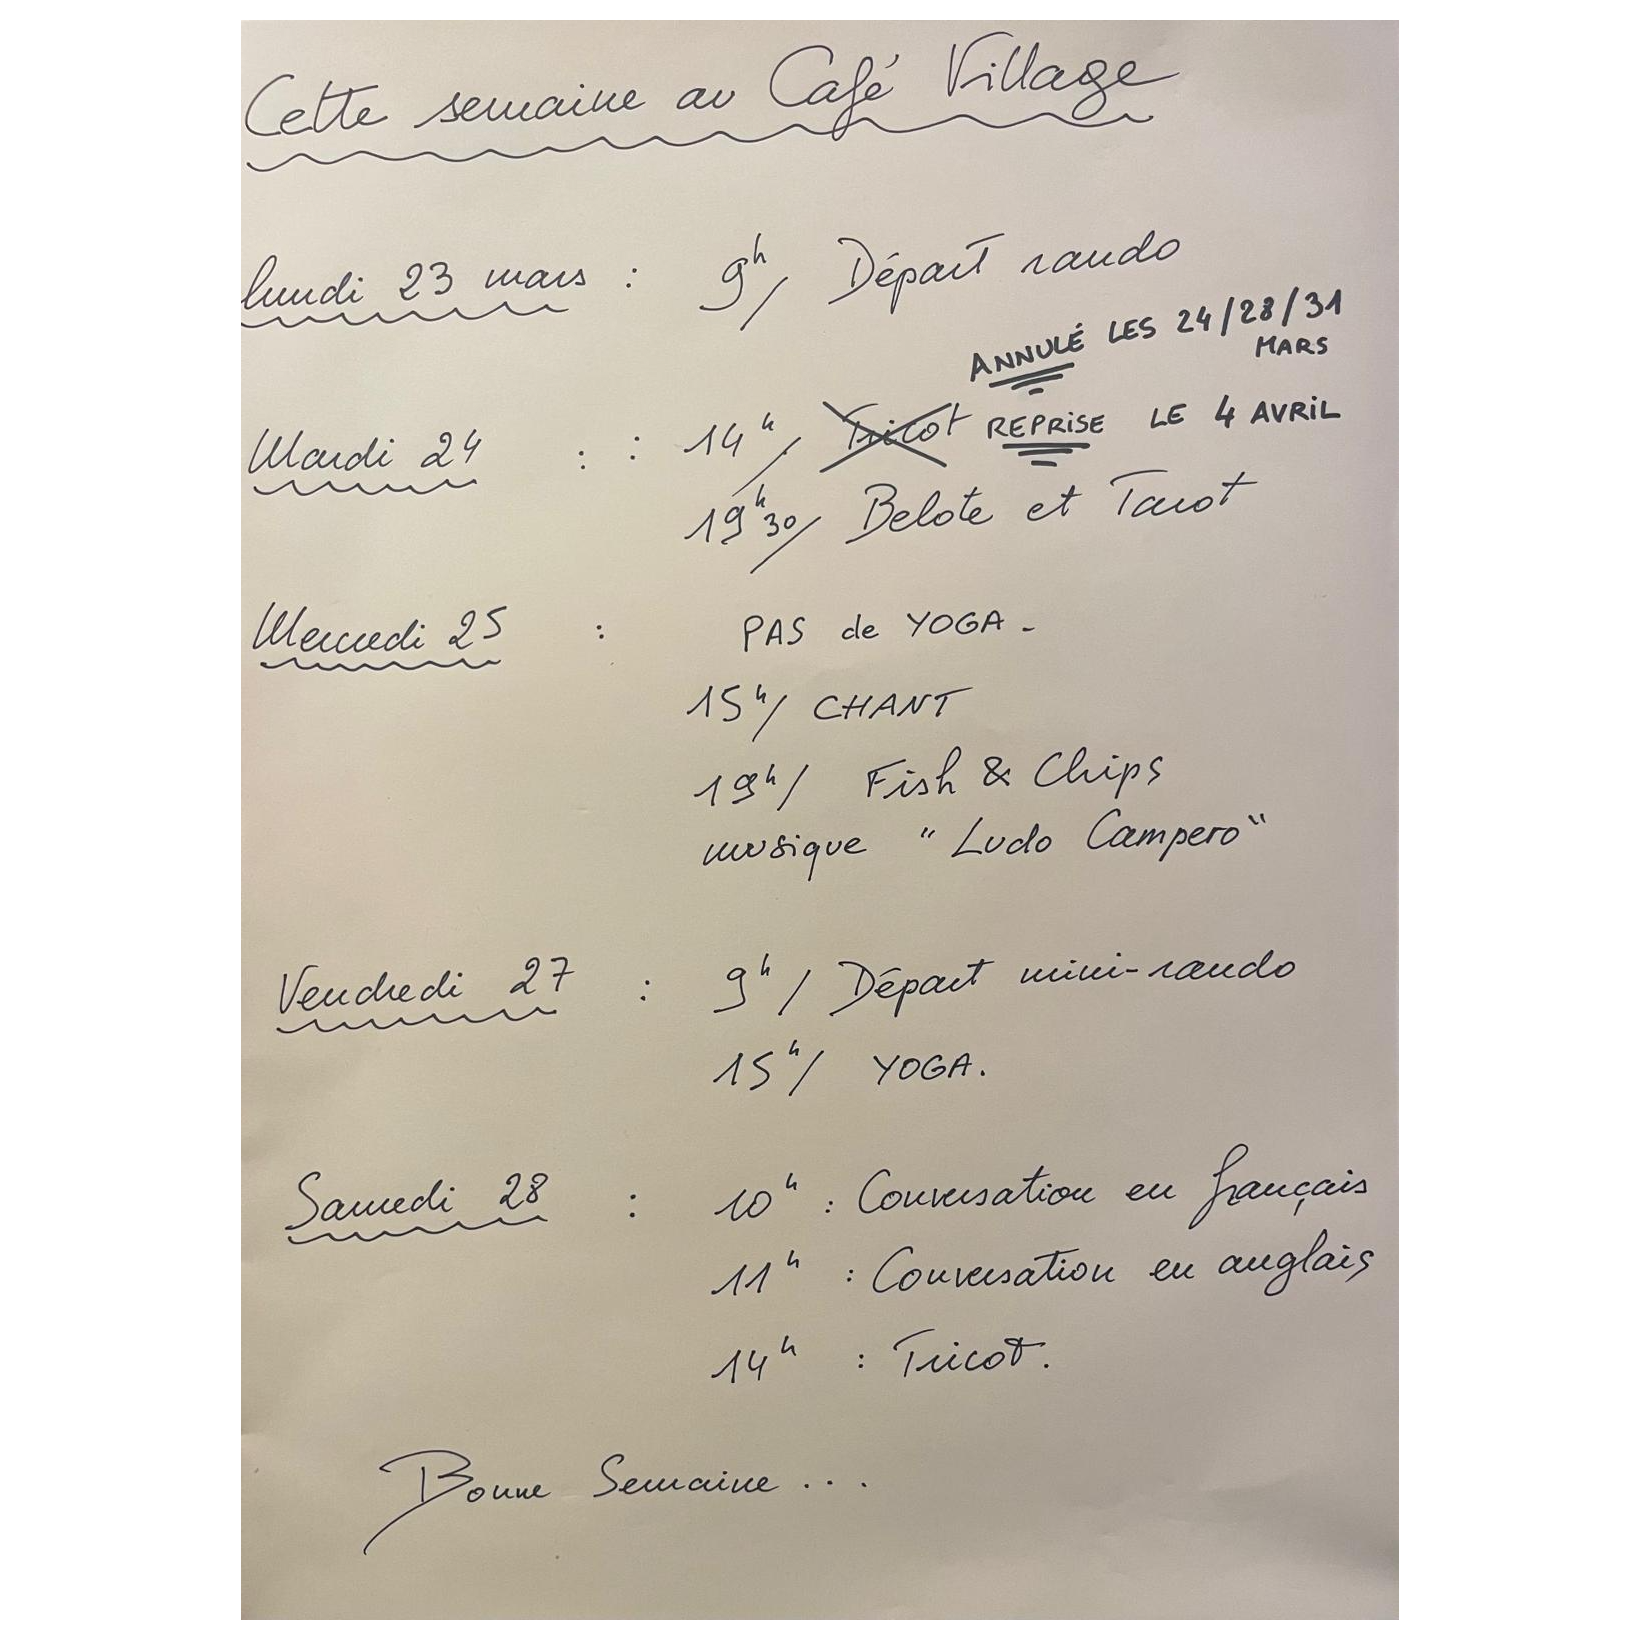 Cette semaine au Café Village
lundi 23 mars : 9h/ Départ rando
ANNULÉ LES 24/28/31
MARS
Mardi 24 : : 14h/ Tricot REPRISE LE 4 AVRIL
19h30/ Belote et Tarot
Mercredi 25 : PAS de YOGA -
15h/ CHANT
19h/ Fish & Chips
musique "Ludo Campero"
Vendredi 27 : 9h/ Départ mini-rando
15h/ YOGA.
Samedi 28 : 10h : Conversation en français
11h : Conversation en anglais
14h : Tricot.
Bonne Semaine...